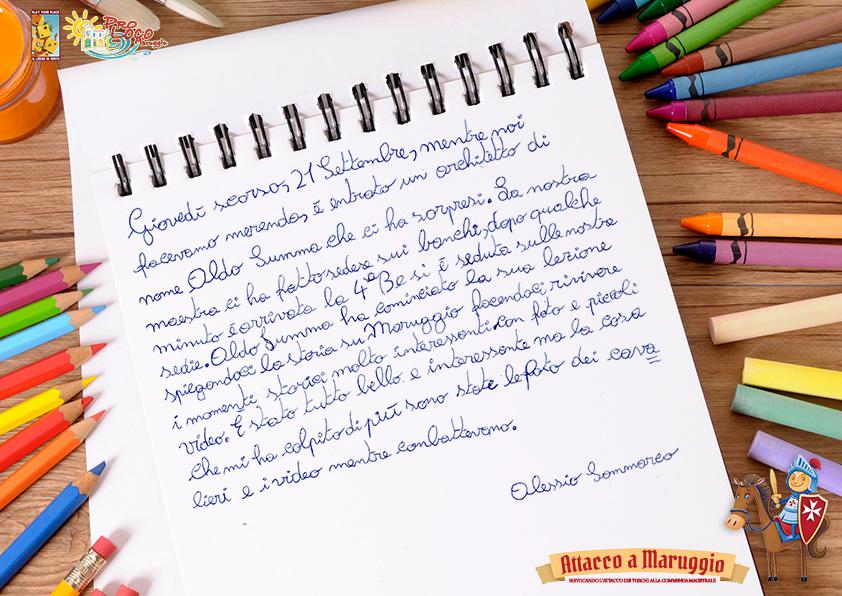 PLAY YOUR PLACE
IL LUOGO IN GIOCO
Pro
Loco
Maruggio
Giovedì scorso, 21 Settembre, mentre noi
facevamo merenda, è entrato un architetto di
nome Aldo Summa che ci ha sorpresi. La nostra
maestra ci ha fatto sedere sui banchi, dopo qualche
minuto è arrivata la 4ª B e si è seduta sulle nostre
sedie. Aldo Summa ha cominciato la sua lezione
spiegandoci la storia su Maruggio facendoci rivivere
i momenti storici molto interessanti con foto e piccoli
video. È stato tutto bello e interessante ma la cosa
che mi ha colpito di più sono state le foto dei cava
lieri e i video mentre conbattevano.
Alessio Sammarco
Attacco a Maruggio
RIEVOCANDO L'ATTACCO DEI TURCHI ALLA COMMENDA MAGISTRALE